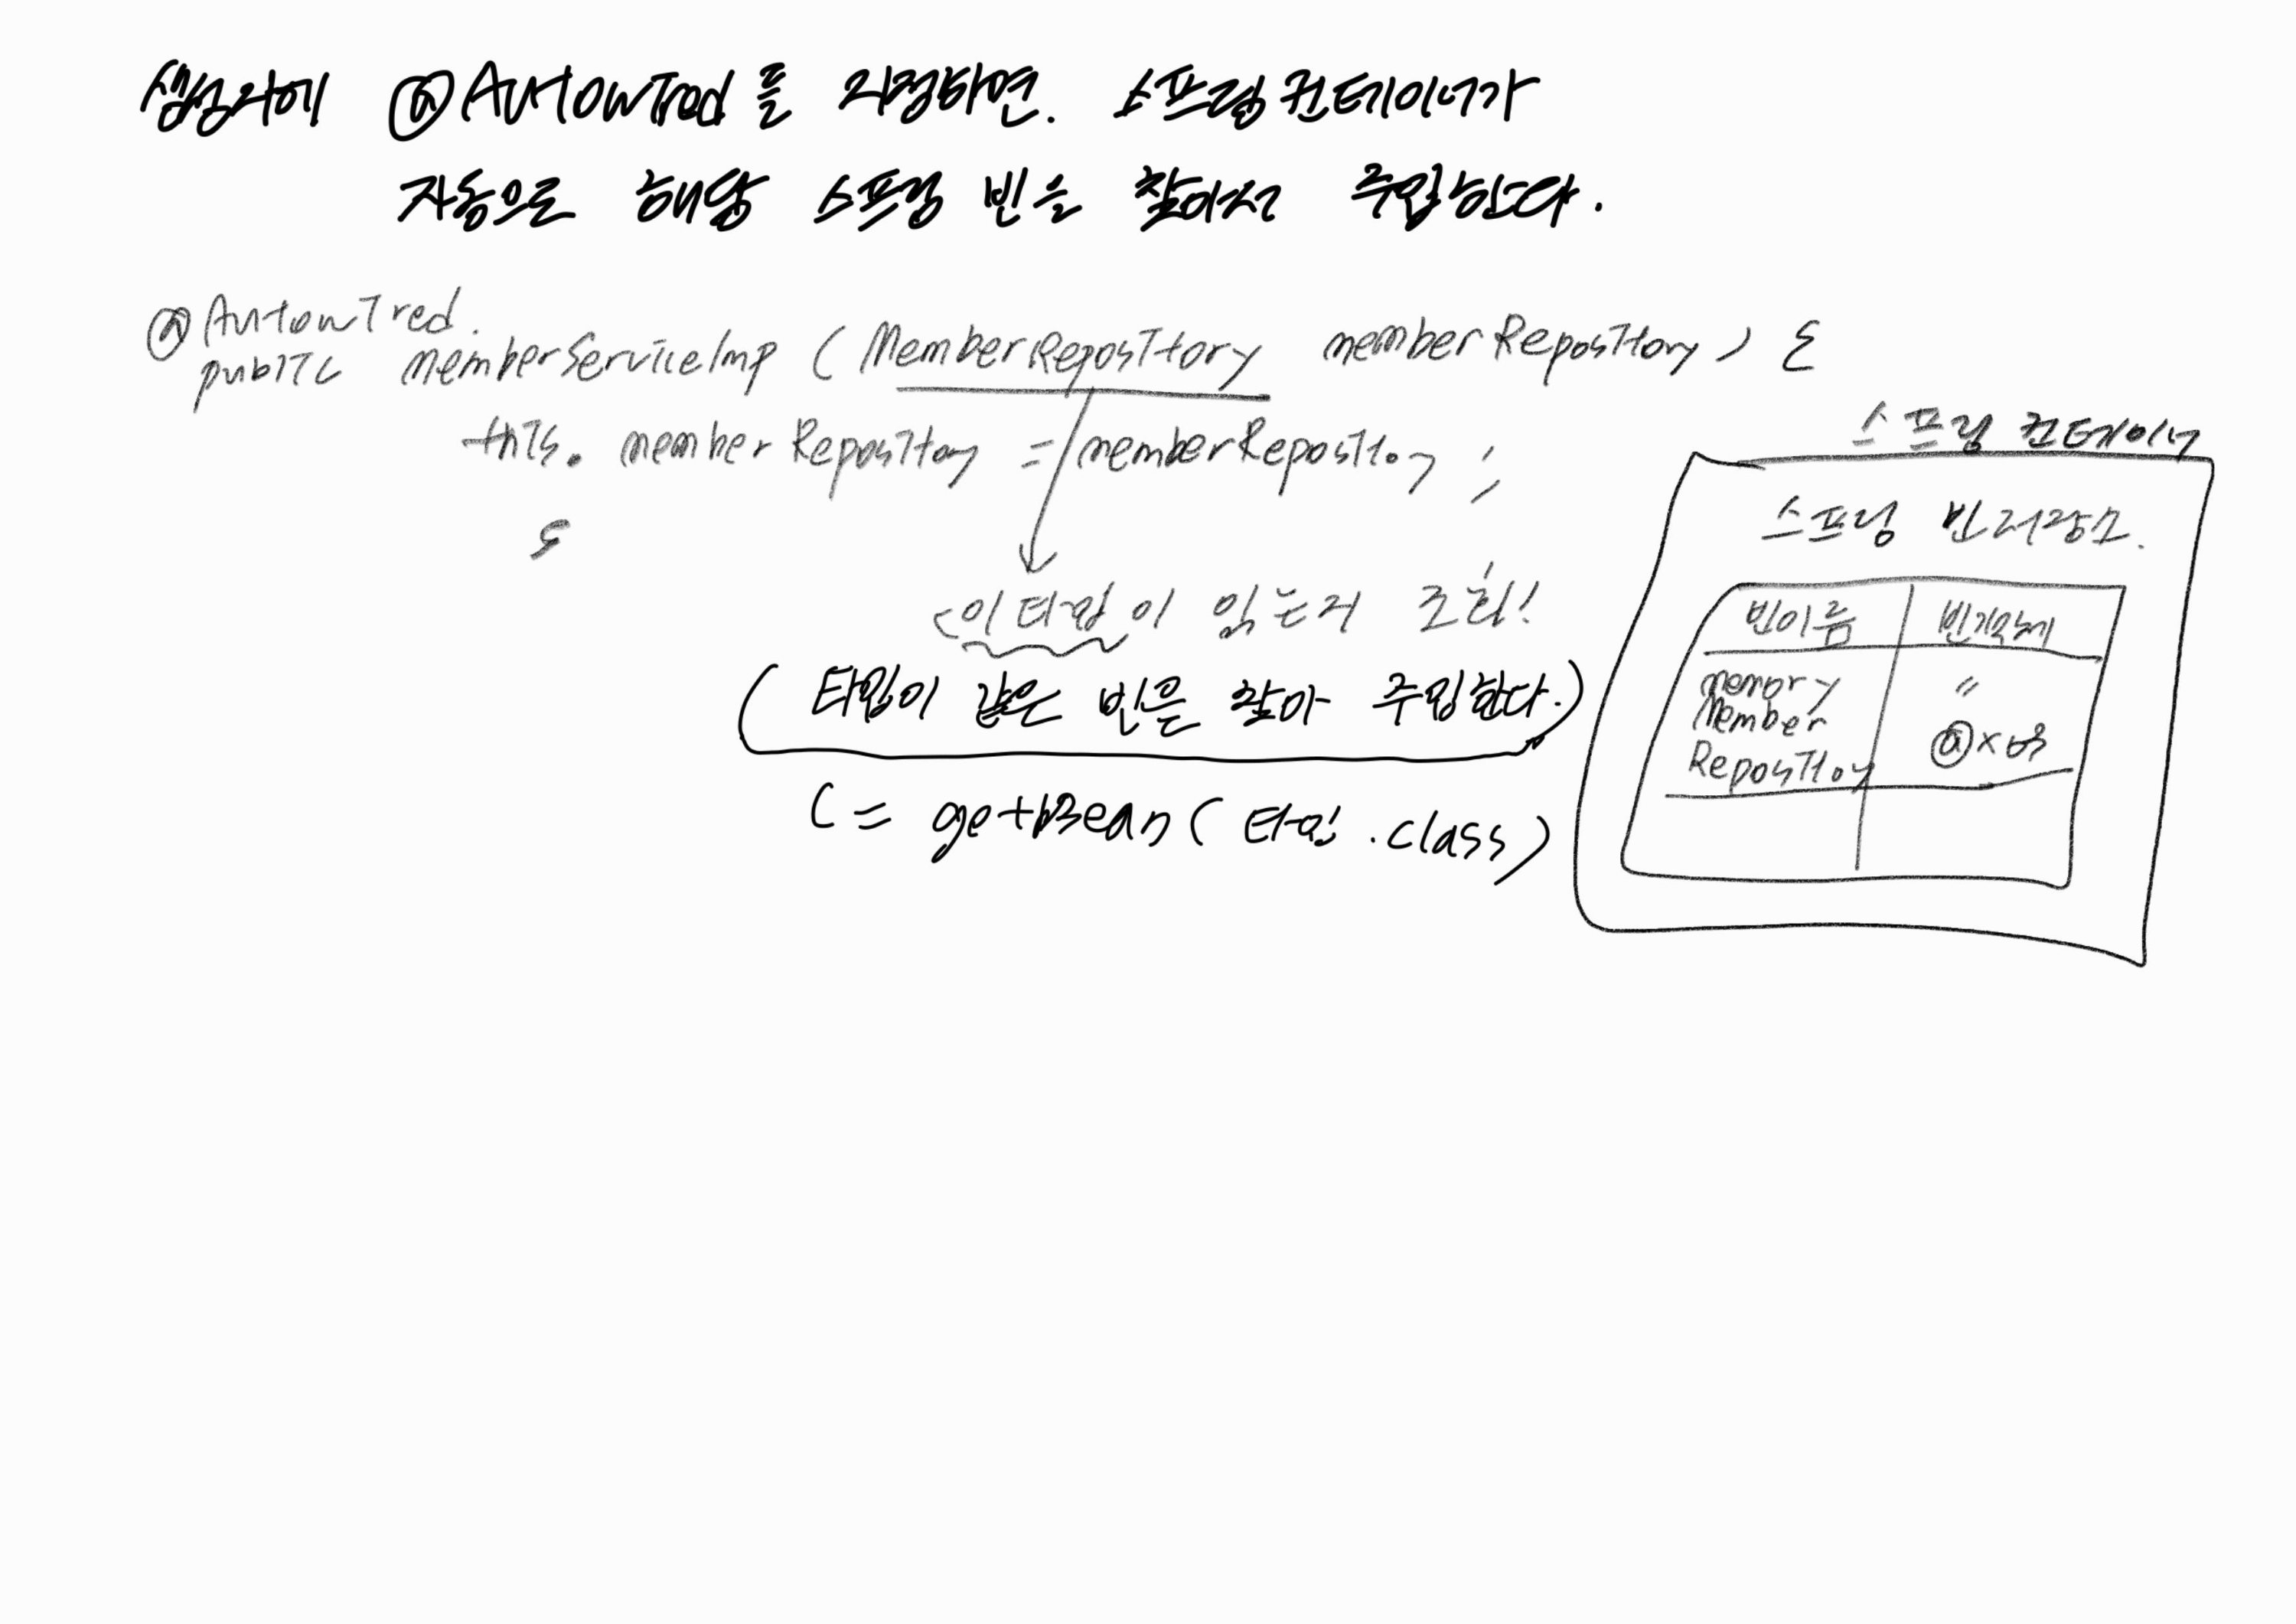 생성자에 @Autowired를 지정하면. 스프링 컨테이너가
자동으로 해당 스프링 빈을 찾아서 주입한다.
@Autowired.
public memberServiceImp (MemberRepository memberRepository) {
this. memberRepository = memberRepository ;
}
이 타입이 있는지 조회!
( 타입이 같은 빈을 찾아 주입한다. )
( = getBean( 타입 .class)
스프링 컨테이너
스프링 빈 저장소.
빈이름 빈객체
memory "
Member
Repository @x01